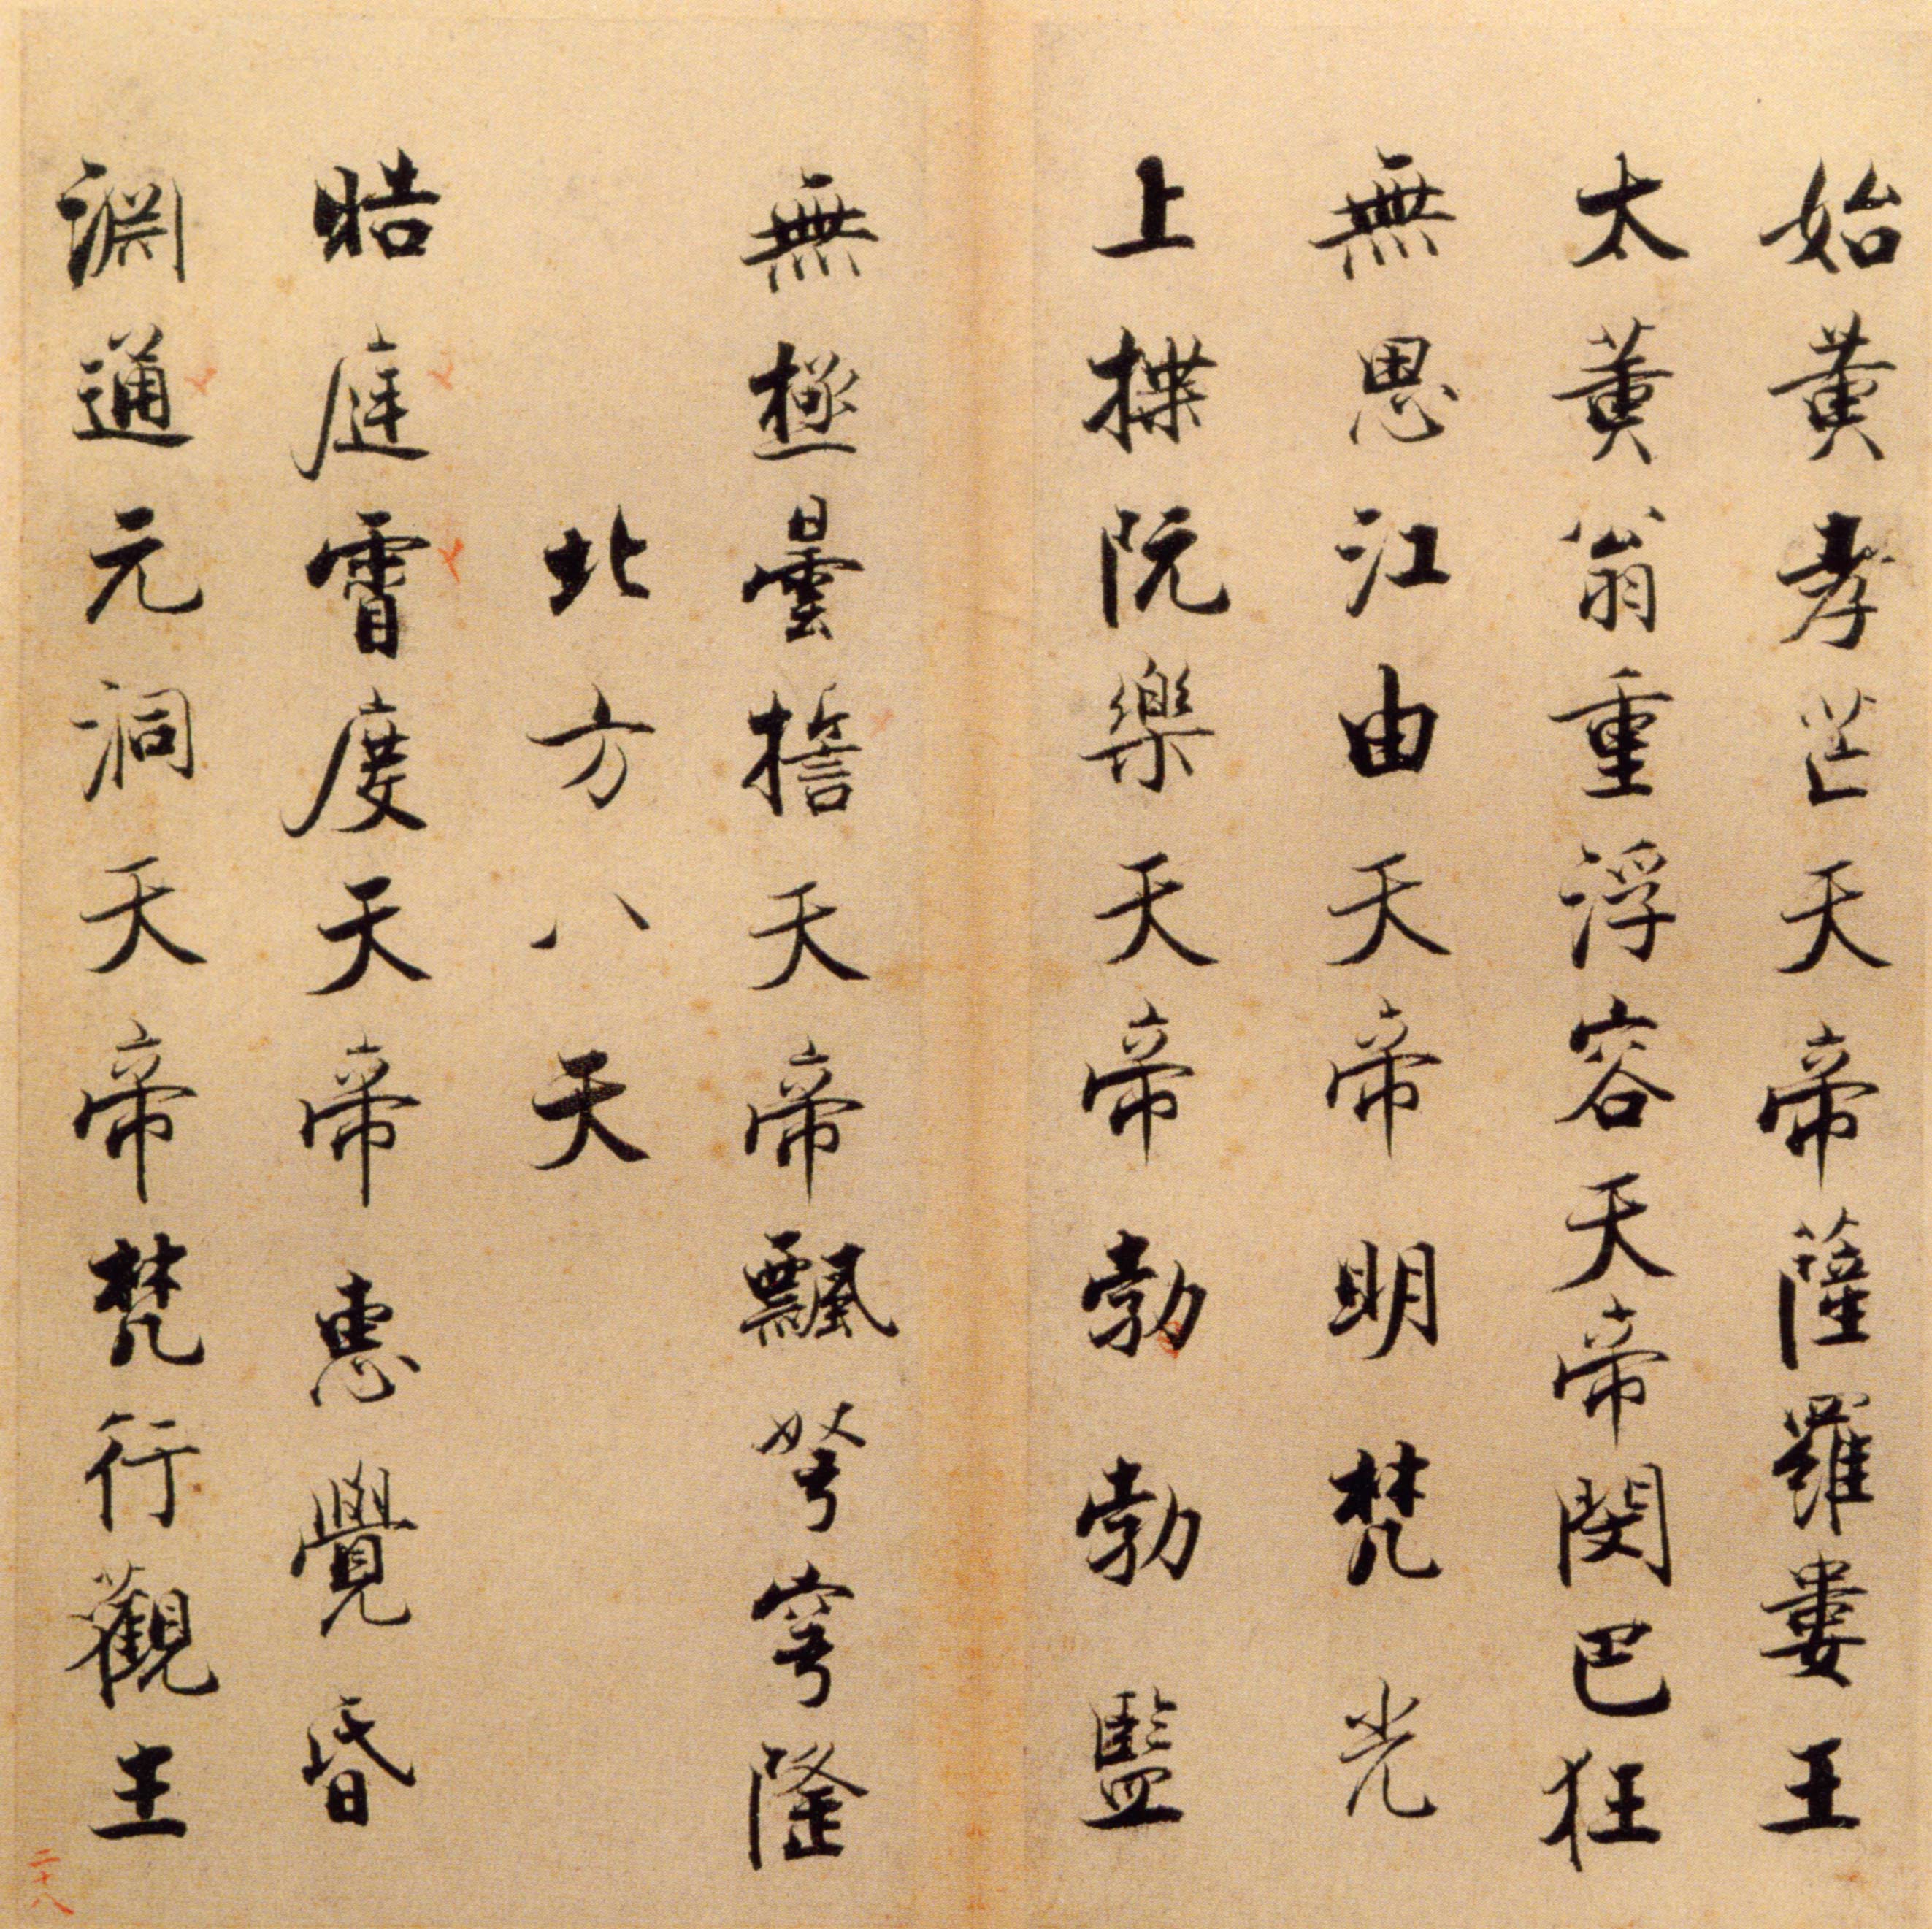 始黄孝芒天帝薩羅婁王
太黄翁重浮容天帝閔巴狂
無思江由天帝明梵光
上揲阮樂天帝勃勃監
無極曇誓天帝飄弩穹隆
北方八天
晧庭霄度天帝惠覺昏
淵通元洞天帝梵行觀王
二十八